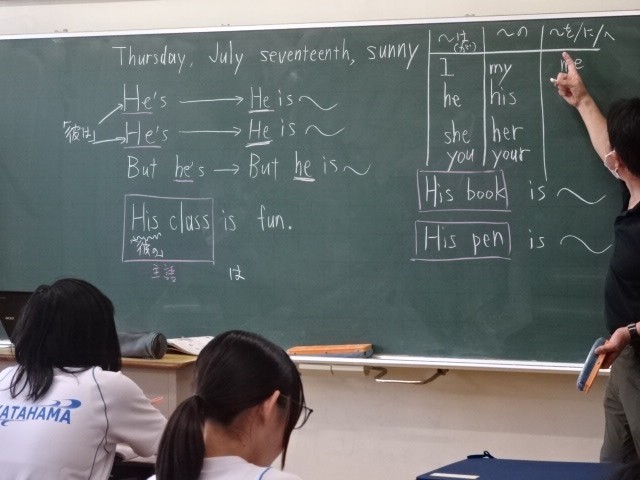 Thursday, July seventeenth, sunny
He's → He is ～
「彼は」
He's → He is ～
But he's → But he is ～
His class is fun.
彼の
主語 は
～は ～の ～を/に/へ
(が)
I my me
he his
she her
you your
His book is ～
His pen is ～
KATAHAMA